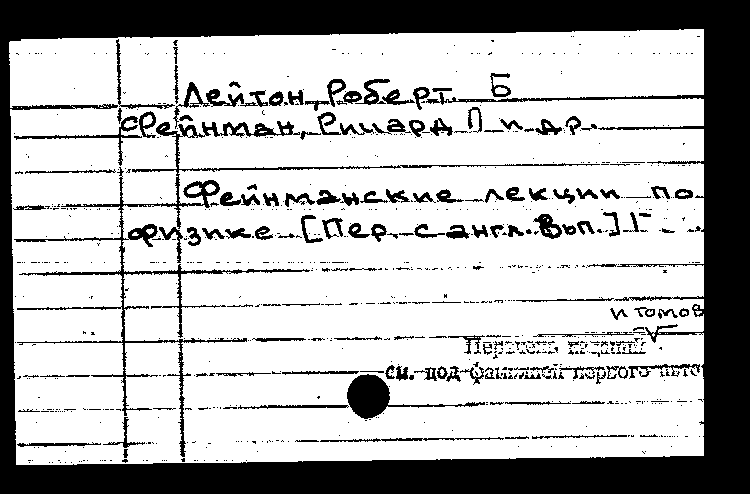 Лейтон, Роберт. Б
Фейнман, Ричард П и др.
Фейнманские лекции по
физике. [Пер. с англ. Вып.] 1- . .
и томов
Перечень изданий
см. под фамилией первого автор